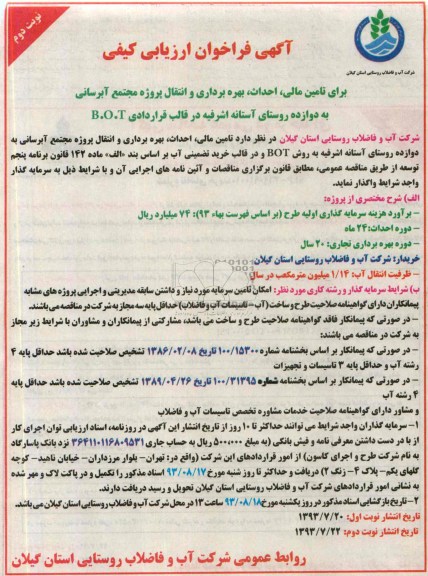 نوبت دوم
شرکت آب و فاضلاب روستایی استان گیلان
آگهی فراخوان ارزیابی کیفی
برای تامین مالی، احداث، بهره برداری و انتقال پروژه مجتمع آبرسانی
به دوازده روستای آستانه اشرفیه در قالب قراردادی B.O.T
شرکت آب و فاضلاب روستایی استان گیلان در نظر دارد تامین مالی، احداث، بهره برداری و انتقال پروژه مجتمع آبرسانی به
دوازده روستای آستانه اشرفیه به روش BOT و در قالب خرید تضمینی آب بر اساس بند «الف» ماده ۱۴۲ قانون برنامه پنجم
توسعه از طریق مناقصه عمومی، مطابق قانون برگزاری مناقصات و آئین نامه های اجرایی آن و با شرایط ذیل به سرمایه گذار
واجد شرایط واگذار نماید.
الف) شرح مختصری از پروژه:
- برآورد هزینه سرمایه گذاری اولیه طرح (بر اساس فهرست بهاء ۹۳): ۷۴ میلیارد ریال
- دوره احداث: ۲۴ ماه
- دوره بهره برداری تجاری: ۲۰ سال
خریدار: شرکت آب و فاضلاب روستایی استان گیلان
- ظرفیت انتقال آب: ۱/۱۴ میلیون مترمکعب در سال
ب) شرایط سرمایه گذار و رشته کاری مورد نظر: امکان تامین سرمایه مورد نیاز و داشتن سابقه مدیریتی و اجرایی پروژه های مشابه
پیمانکاران دارای گواهینامه صلاحیت طرح و ساخت (آب - تاسیسات آب و فاضلاب) حداقل پایه سه مجاز به شرکت در مناقصه می باشند.
- در صورتی که پیمانکار فاقد گواهینامه صلاحیت طرح و ساخت می باشد، مشارکتی از پیمانکاران و مشاوران با شرایط زیر مجاز
به شرکت در مناقصه می باشند:
- در صورتی که پیمانکار بر اساس بخشنامه شماره ۱۰۰/۱۵۳۰۰ تاریخ ۱۳۸۶/۰۲/۰۸ تشخیص صلاحیت شده باشد حداقل پایه ۴
رشته آب و حداقل پایه ۳ تاسیسات و تجهیزات
- در صورتی که پیمانکار بر اساس بخشنامه شماره ۱۰۰/۳۱۳۹۵ تاریخ ۱۳۸۹/۰۴/۲۶ تشخیص صلاحیت شده باشد حداقل پایه
۴ رشته آب
و مشاور دارای گواهینامه صلاحیت خدمات مشاوره تخصص تاسیسات آب و فاضلاب
۱- سرمایه گذاران واجد شرایط می توانند حداکثر تا ۱۰ روز از تاریخ انتشار این آگهی در روزنامه، اسناد ارزیابی توان اجرای کار
را با در دست داشتن معرفی نامه و فیش بانکی (به مبلغ ۵۰۰،۰۰۰ ریال به حساب جاری ۳۶۴۱۱۰۱۱۶۸۰۹۵۳۱ نزد بانک پاسارگاد
به نام شرکت طرح و اجرای کاسون) از امور قراردادهای این شرکت (واقع در: تهران- بلوار مرزداران- خیابان ناهید- کوچه
گلهای یکم- پلاک ۴- زنگ ۲) دریافت و حداکثر تا روز شنبه مورخ ۹۳/۰۸/۱۷ اسناد مذکور را تکمیل و در پاکت لاک و مهر شده
به نشانی امور قراردادهای شرکت آب و فاضلاب روستایی استان گیلان تحویل و رسید دریافت دارند.
۲- تاریخ بازگشایی اسناد مذکور در روز یکشنبه مورخ ۹۳/۰۸/۱۸ ساعت ۱۳ در محل شرکت آب و فاضلاب روستایی استان گیلان می باشد.
تاریخ انتشار نوبت اول: ۱۳۹۳/۷/۲۰
تاریخ انتشار نوبت دوم: ۱۳۹۳/۷/۲۲
روابط عمومی شرکت آب و فاضلاب روستایی استان گیلان